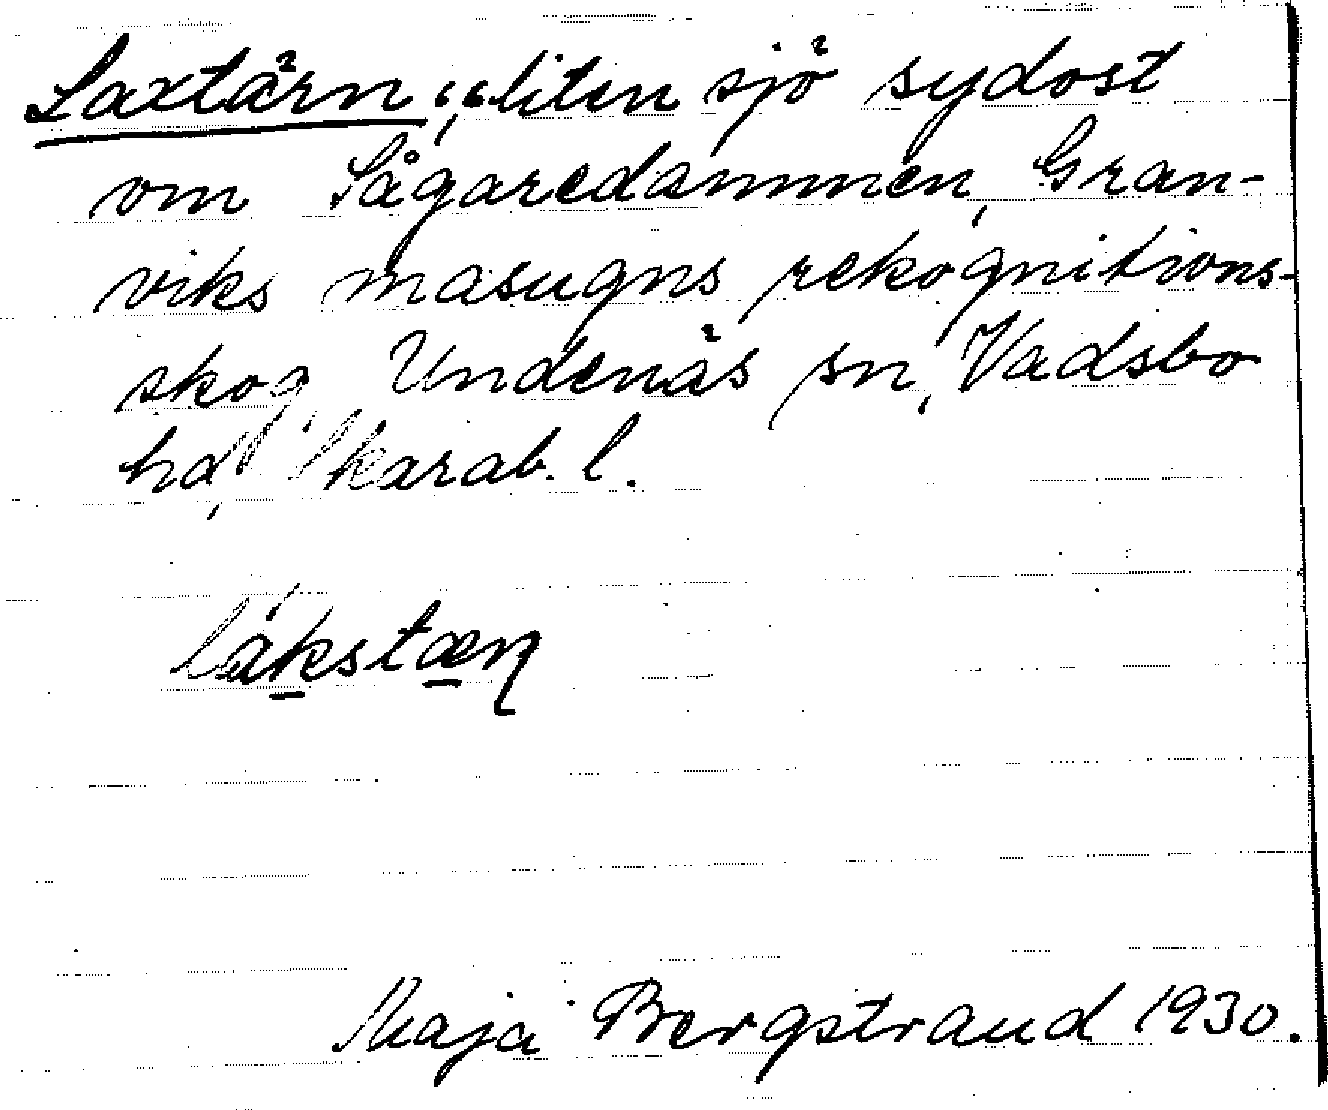 Laxtärn, liten sjö sydost
om Sågaredammen, Gran-
viks masugns rekognitions-
skog, Undenäs sn, Vadsbo
hd, Skarab. l.
lákstæn
Maja Bergstrand 1930.